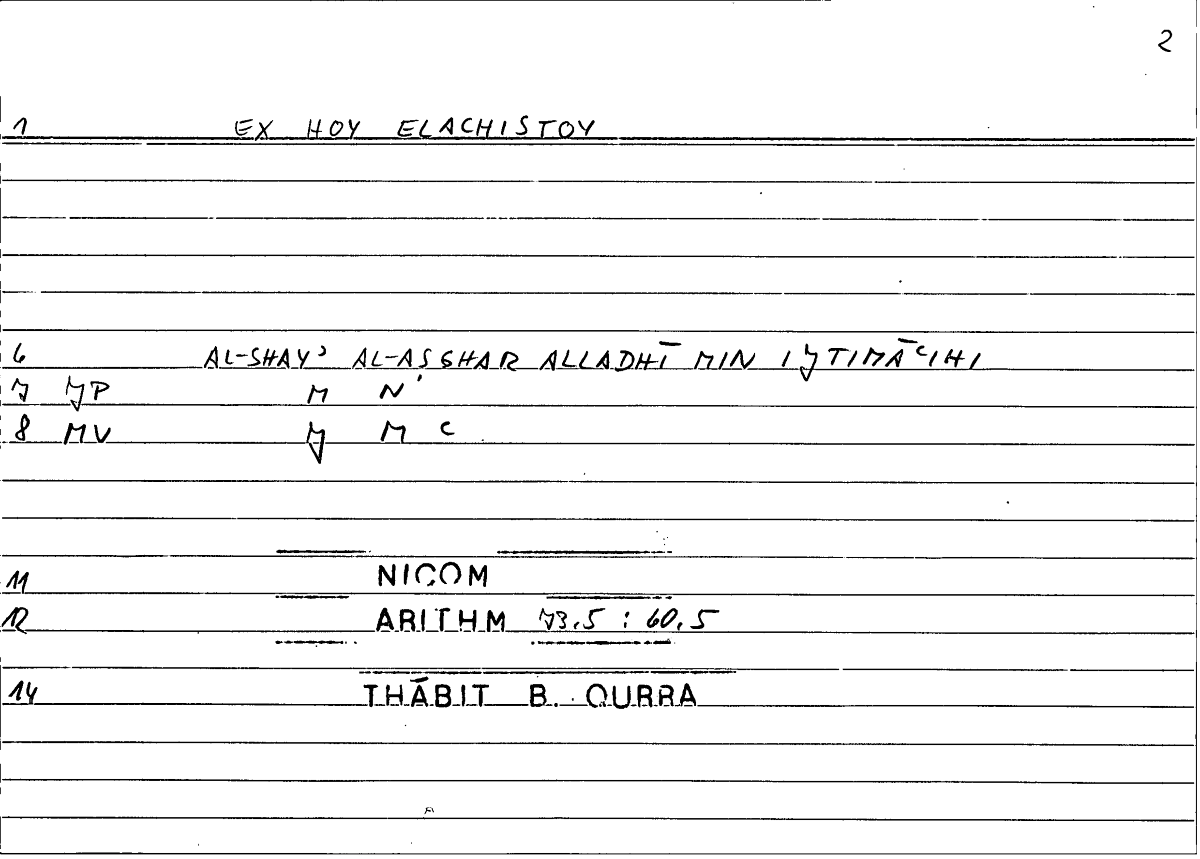 2
1 EX HOY ELACHISTOY
6 AL-SHAYʾ AL-ASGHAR ALLADHĪ MIN IJTIMĀʿIHI
7 JP M N'
8 MV J M C
11 NICOM
12 ARITHM 73.5 : 60.5
14 THĀBIT B. QURRA